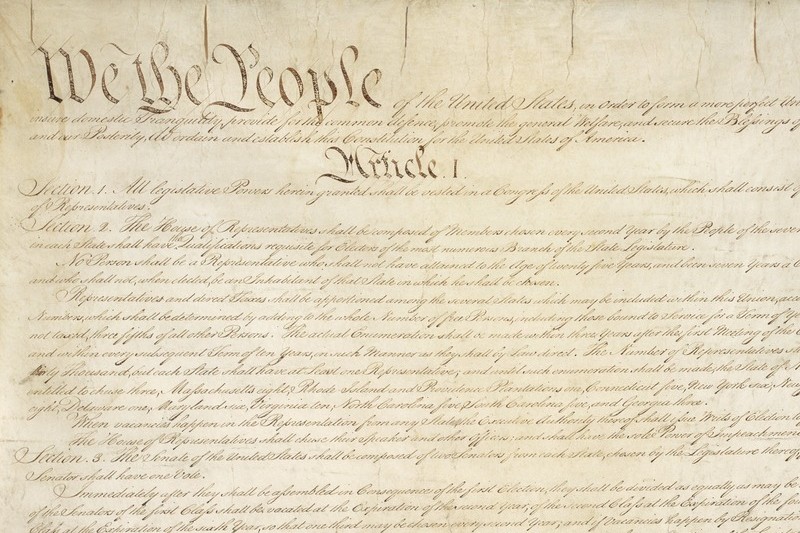 We the People of the United States, in Order to form a more perfect
insure domestic Tranquility, provide for the common defence, promote the general Welfare, and secure the Blessings of
and our Posterity, do ordain and establish this Constitution for the United States of America.
Article. I.
Section. 1. All legislative Powers herein granted shall be vested in a Congress of the United States, which shall consist of
of Representatives.
Section. 2. The House of Representatives shall be composed of Members chosen every second Year by the People of the several
in each State shall have the Qualifications requisite for Electors of the most numerous Branch of the State Legislature.
No Person shall be a Representative who shall not have attained to the Age of twenty five Years, and been seven Years a
and who shall not, when elected, be an Inhabitant of that State in which he shall be chosen.
Representatives and direct Taxes shall be apportioned among the several States which may be included within this Union,
Numbers, which shall be determined by adding to the whole Number of free Persons, including those bound to Service for a Term of
not taxed, three fifths of all other Persons. The actual Enumeration shall be made within three Years after the first Meeting of the
and within every subsequent Term of ten Years, in such Manner as they shall by Law direct. The Number of Representatives
thirty Thousand, but each State shall have at Least one Representative; and until such enumeration shall be made, the State of
entitled to chuse three, Massachusetts eight, Rhode Island and Providence Plantations one, Connecticut five, New York six, New
eight, Delaware one, Maryland six, Virginia ten, North Carolina five, South Carolina five, and Georgia three.
When vacancies happen in the Representation from any State, the Executive Authority thereof shall issue Writs of Election to
The House of Representatives shall chuse their Speaker and other Officers; and shall have the sole Power of Impeachment
Section. 3. The Senate of the United States shall be composed of two Senators from each State, chosen by the Legislature thereof,
Senator shall have one Vote.
Immediately after they shall be assembled in Consequence of the first Election, they shall be divided as equally as may be
of the Senators of the first Class shall be vacated at the Expiration of the second Year, of the second Class at the Expiration of the
Class at the Expiration of the sixth Year, so that one third may be chosen every second Year; and if Vacancies happen by Resignation